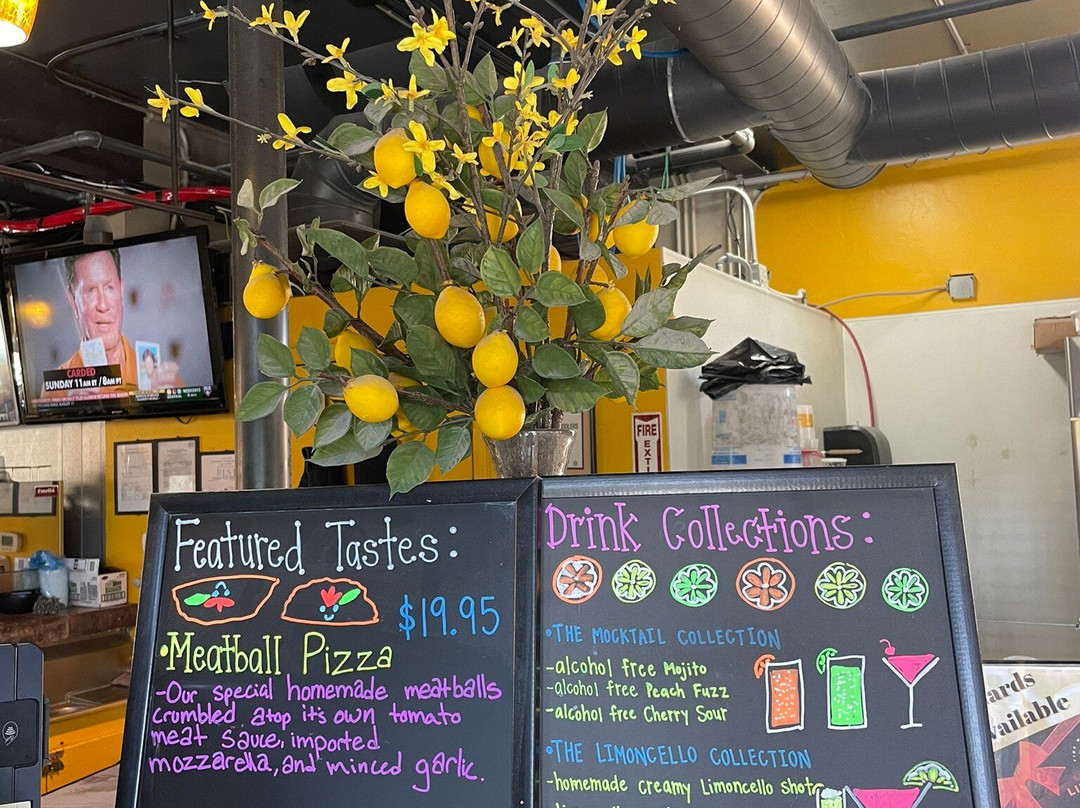 CARDED
SUNDAY 11AM ET / 8AM PT
FIRE
EXT
Featured Tastes:
$19.95
•Meatball Pizza
-Our special homemade meatballs
crumbled atop it's own tomato
meat sauce, imported
mozzarella, and minced garlic.
Drink Collections:
•THE MOCKTAIL COLLECTION
-alcohol free Mojito
-alcohol free Peach Fuzz
-alcohol free Cherry Sour
•THE LIMONCELLO COLLECTION
-homemade creamy Limoncello shots
ards
vailable